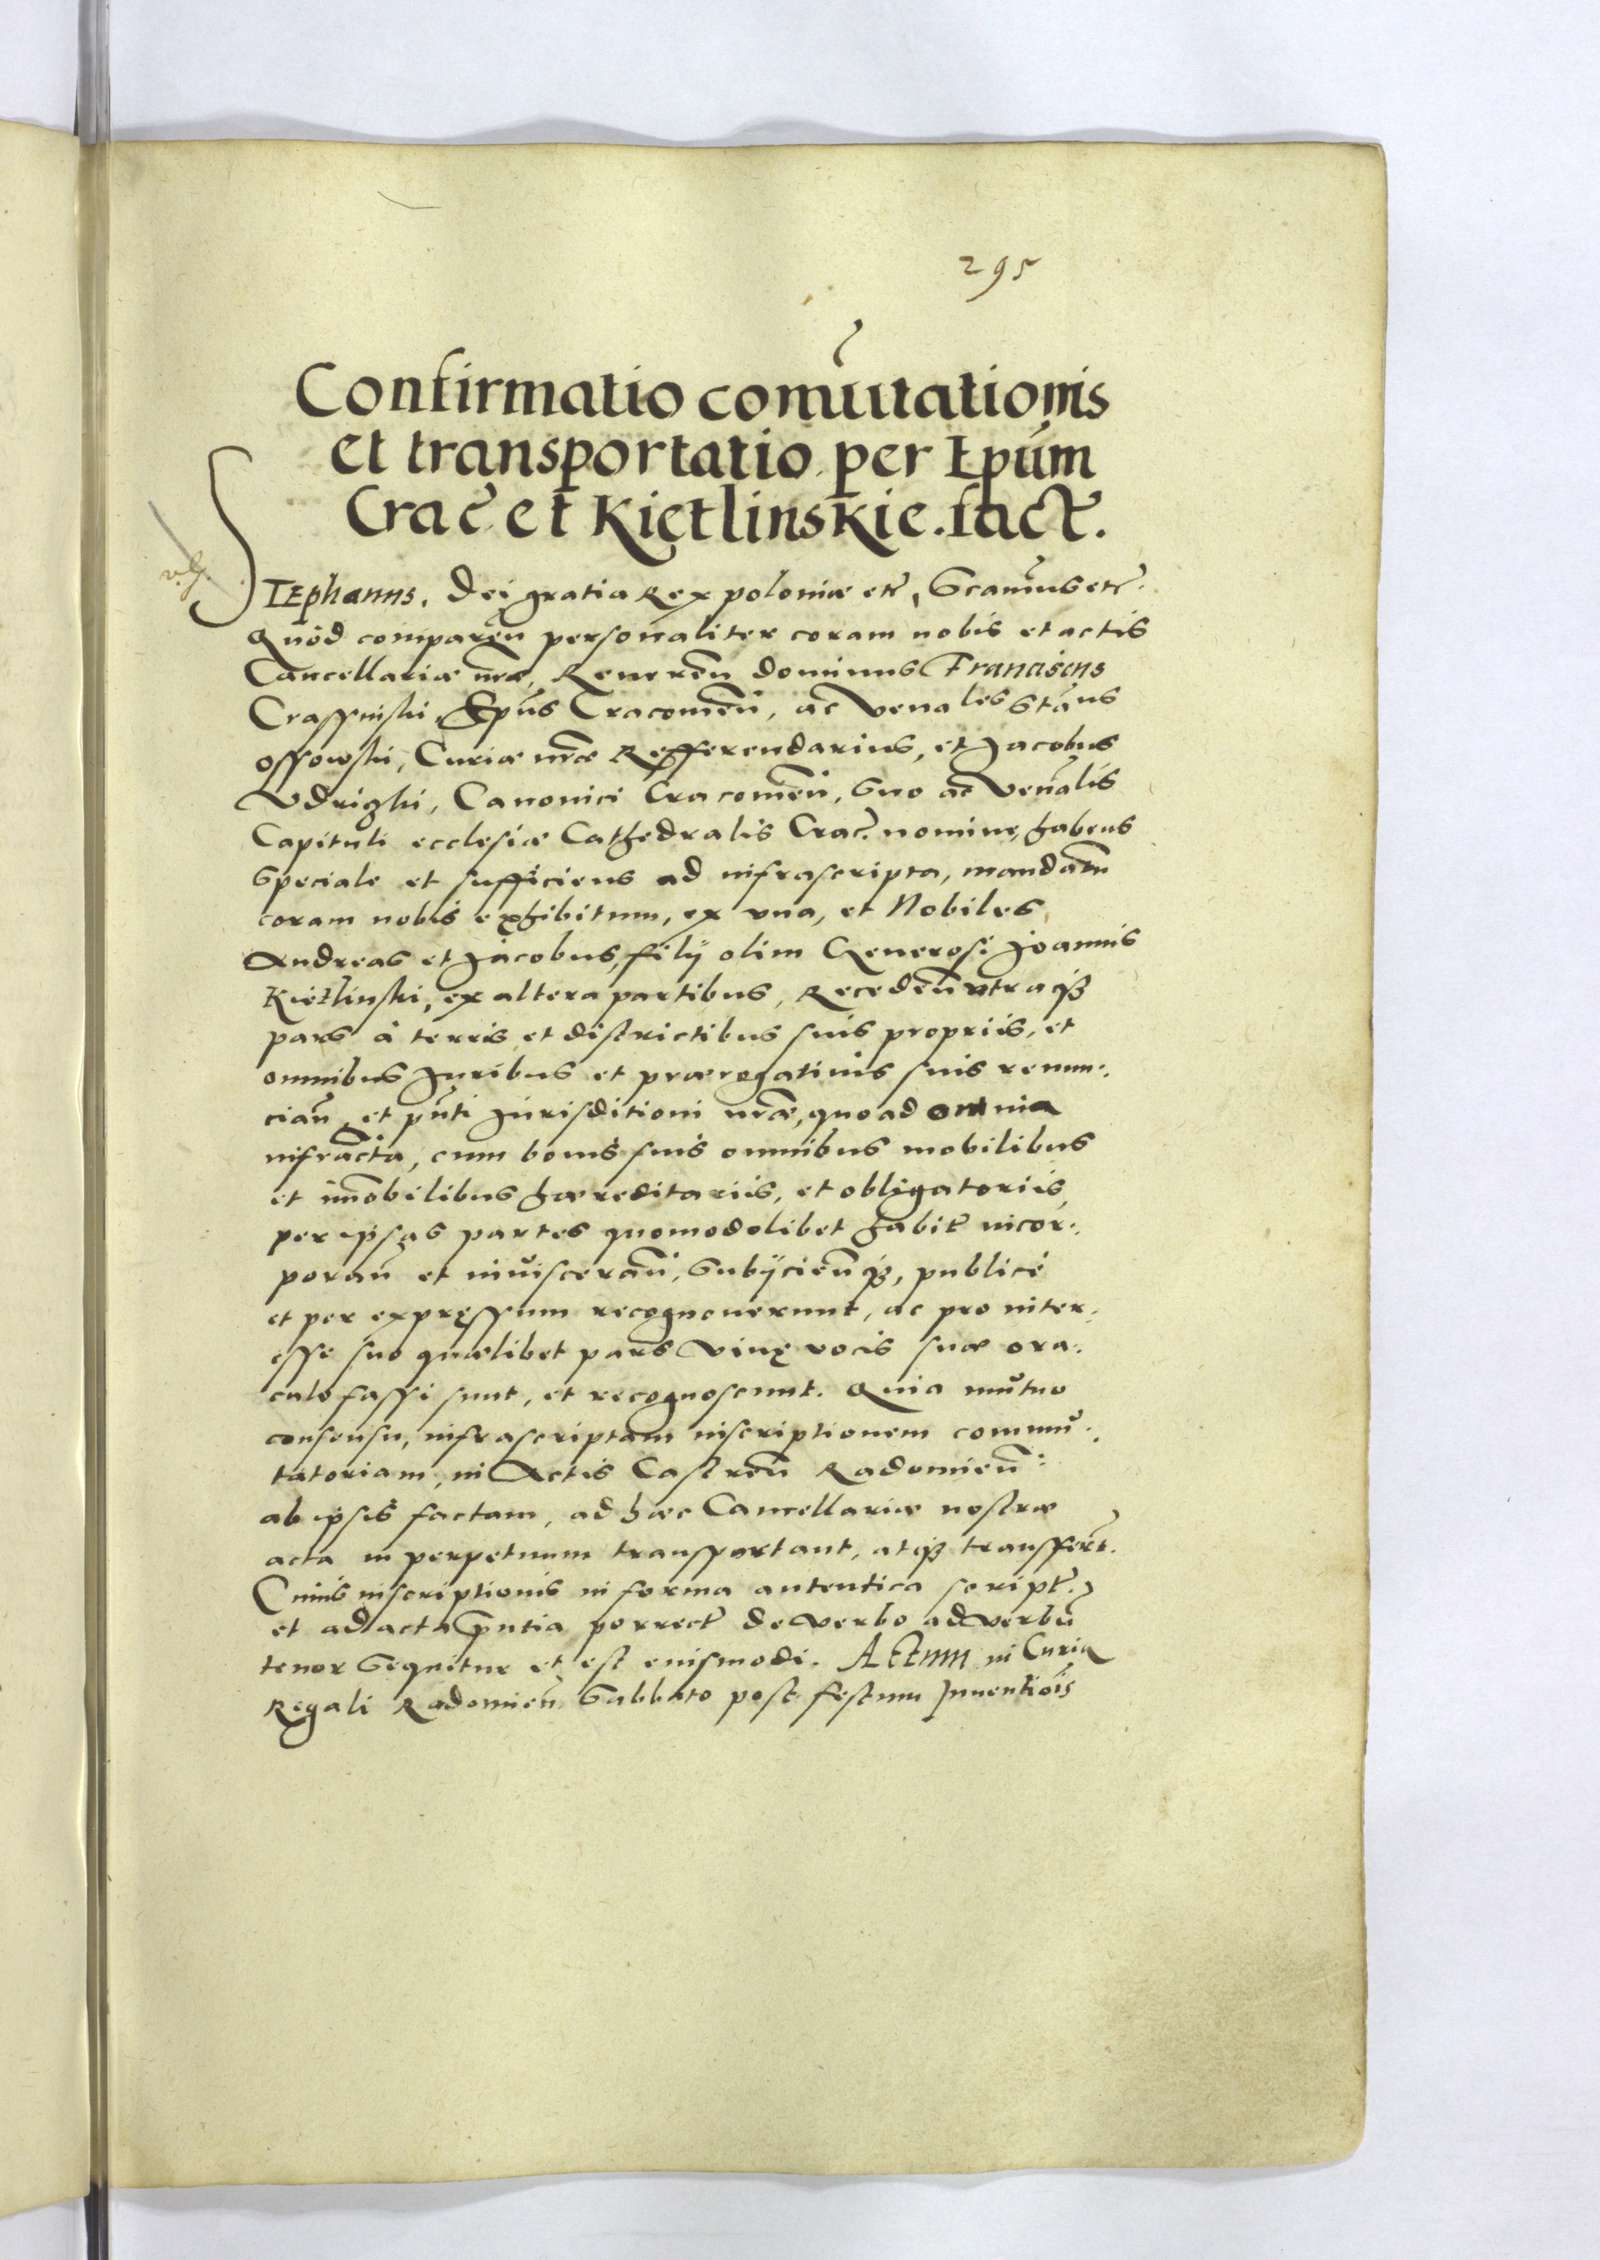 295
Confirmatio com̃utationis
et transportatio per Epũm
Crac̃ et Kietlinskie. fact̃.
STEphanus. Dei gratia Rex poloniæ etc̃, Scam̃us etc̃.
Quod comparen̄ personaliter coram nobis et actis
Cancellariæ nr̃æ, Reueren̄ dominus Franciscus
Crassinski, Ep̃us Cracouien̄, ac Venales Stãus
Ossowski, Curiæ nr̃æ Refferendarius, et Jacobus
Vdrighi, Canonici Cracouien̄, suo ac Ven̄alis
Capituli ecclesiæ Cathedralis Crac̃. nomine, habens
speciale et sufficiens ad infrascripta, mandatũ
coram nobis exhibitum, ex vna, et Nobiles
Andreas et Jacobus, filij olim Generosi Joannis
Kietlinski, ex altera partibus, Receden̄ vtraqȝ
pars à terris et districtibus suis propriis, et
omnibus Juribus et prærogatiuis suis renun:
cian̄, et pñti Jurisditioni nr̃æ, quo ad omnia
infrãcta, cum bonis suis omnibus mobilibus
et im̃obilibus hæreditariis, et obligatoriis,
per ipsas partes quomodolibet habit̃ incor:
poran̄ et inuisceran̄, Subijcien̄qȝ, publicè
et per expręssum recognouerunt, ac pro inter:
esse suo quælibet pars viuę vocis suæ ora:
culo fassi sunt, et recognoscunt. Quia mutuo
consensu, infrascriptam inscriptionem commu:
tatoriam, in Actis Castren̄ Radomien̄:
ab ipsis factam, ad hæc Cancellariæ nostræ
acta in perpetuum transportant, atqȝ transffert̃.
Cuius inscriptionis in forma autentica script̃.
et ad acta p̃ntia porrect̃ de verbo ad verbũ
tenor sequitur et est eiusmodi. ACtum in Curia
Regali Radomien̄ Sabbato post festum Inuentiõis